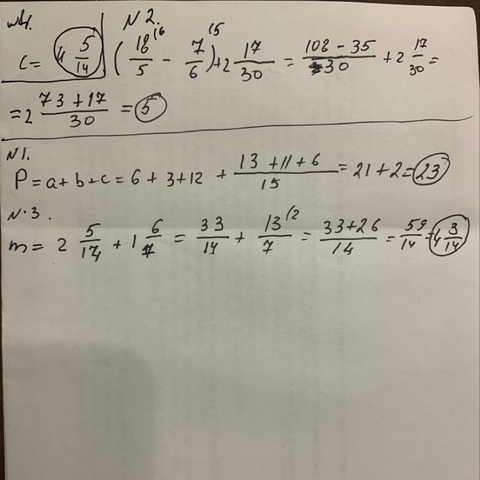 №4. №2.
c = 4 5/14 (18/5 ⁽⁶ - 7/6 ⁽⁵) + 2 17/30 = (108 - 35)/30 + 2 17/30 =
= 2 (73 + 17)/30 = 5
№1.
P = a + b + c = 6 + 3 + 12 + (13 + 11 + 6)/15 = 21 + 2 = 23
№3.
m = 2 5/14 + 1 6/7 = 33/14 + 13/7 ⁽² = (33 + 26)/14 = 59/14 = 4 3/14